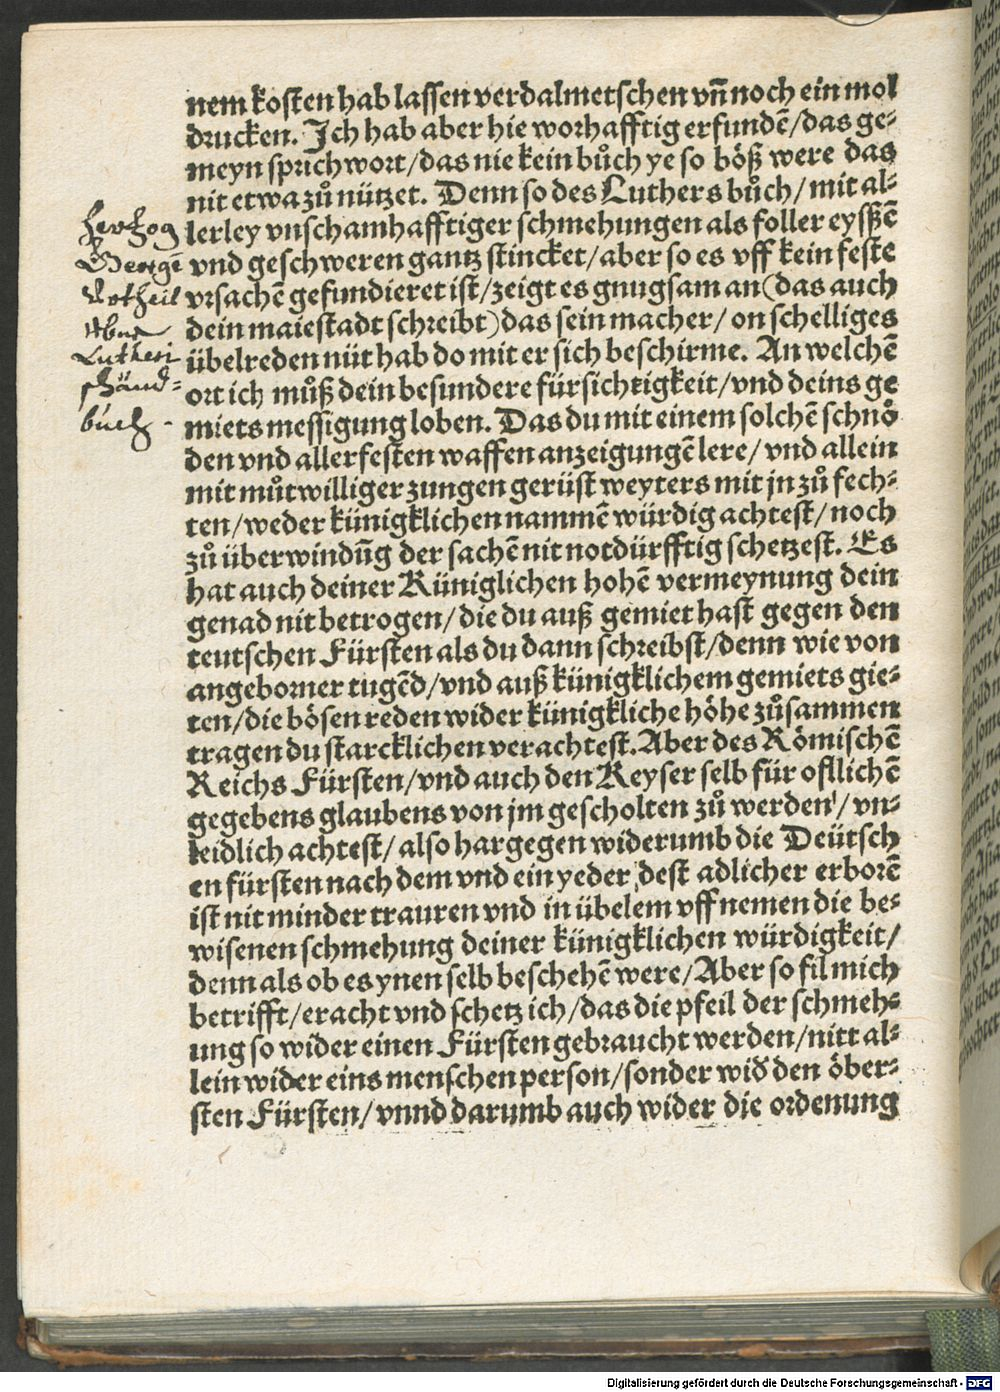 nem kosten hab lassen verdalmetschen vñ noch ein mol
drucken. Ich hab aber hie worhafftig erfundē/das ge-
meyn sprichwort/das nie kein bůch ye so böß were das
nit etwa zů nützet. Denn so des Luthers bůch/mit al-
lerley vnschamhafftiger schmehungen als foller eysßē
vnd geschweren gantz stincket/aber so es vff kein feste
vrsachē gefundieret ist/zeigt es gnugsam an(das auch
dein maiestadt schreibt)das sein macher/on schelliges
übelreden nüt hab do mit er sich beschirme. An welchē
ort ich můß dein besundere fürsichtigkeit/vnd deins ge
miets messigung loben. Das du mit einem solchē schnö
den vnd aller festen waffen anzeigungē lere/vnd allein
mit můtwilliger zungen gerüst weyters mit jn zů fech-
ten/weder künigklichen nammē würdig achtest/noch
zů überwindūg der sachē nit notdürfftig schetzest. Es
hat auch deiner Küniglichen hohē vermeynung dein
genad nit betrogen/die du auß gemiet hast gegen den
teutschen Fürsten als du dann schreibst/denn wie von
angeborner tugēd/vnd auß künigklichem gemiets gie-
ten/die bösen reden wider künigkliche höhe zůsammen
tragen du starcklichen verachtest. Aber des Römischē
Reichs Fürsten/vnd auch den Keyser selb für ofllichē
gegebens glaubens von jm gescholten zů werden/vn-
leidlich achtest/also hargegen widerumb die Deütsch
en fürsten nach dem vnd ein yeder dest adlicher erborē
ist nit minder trauren vnd in übelem vff nemen die be-
wisenen schmehung deiner künigklichen würdigkeit/
denn als ob es ynen selb beschehē were/Aber so fil mich
betrifft/eracht vnd schetz ich/das die pfeil der schmeh-
ung so wider einen Fürsten gebraucht werden/nitt al-
lein wider eins menschen person/sonder wiđ den öber-
sten Fürsten/vnnd darumb auch wider die ordenung
Hertzog
Georgē
Vrtheil
vber
Lutheri
schänd-
büch.
Digitalisierung gefördert durch die Deutsche Forschungsgemeinschaft - DFG